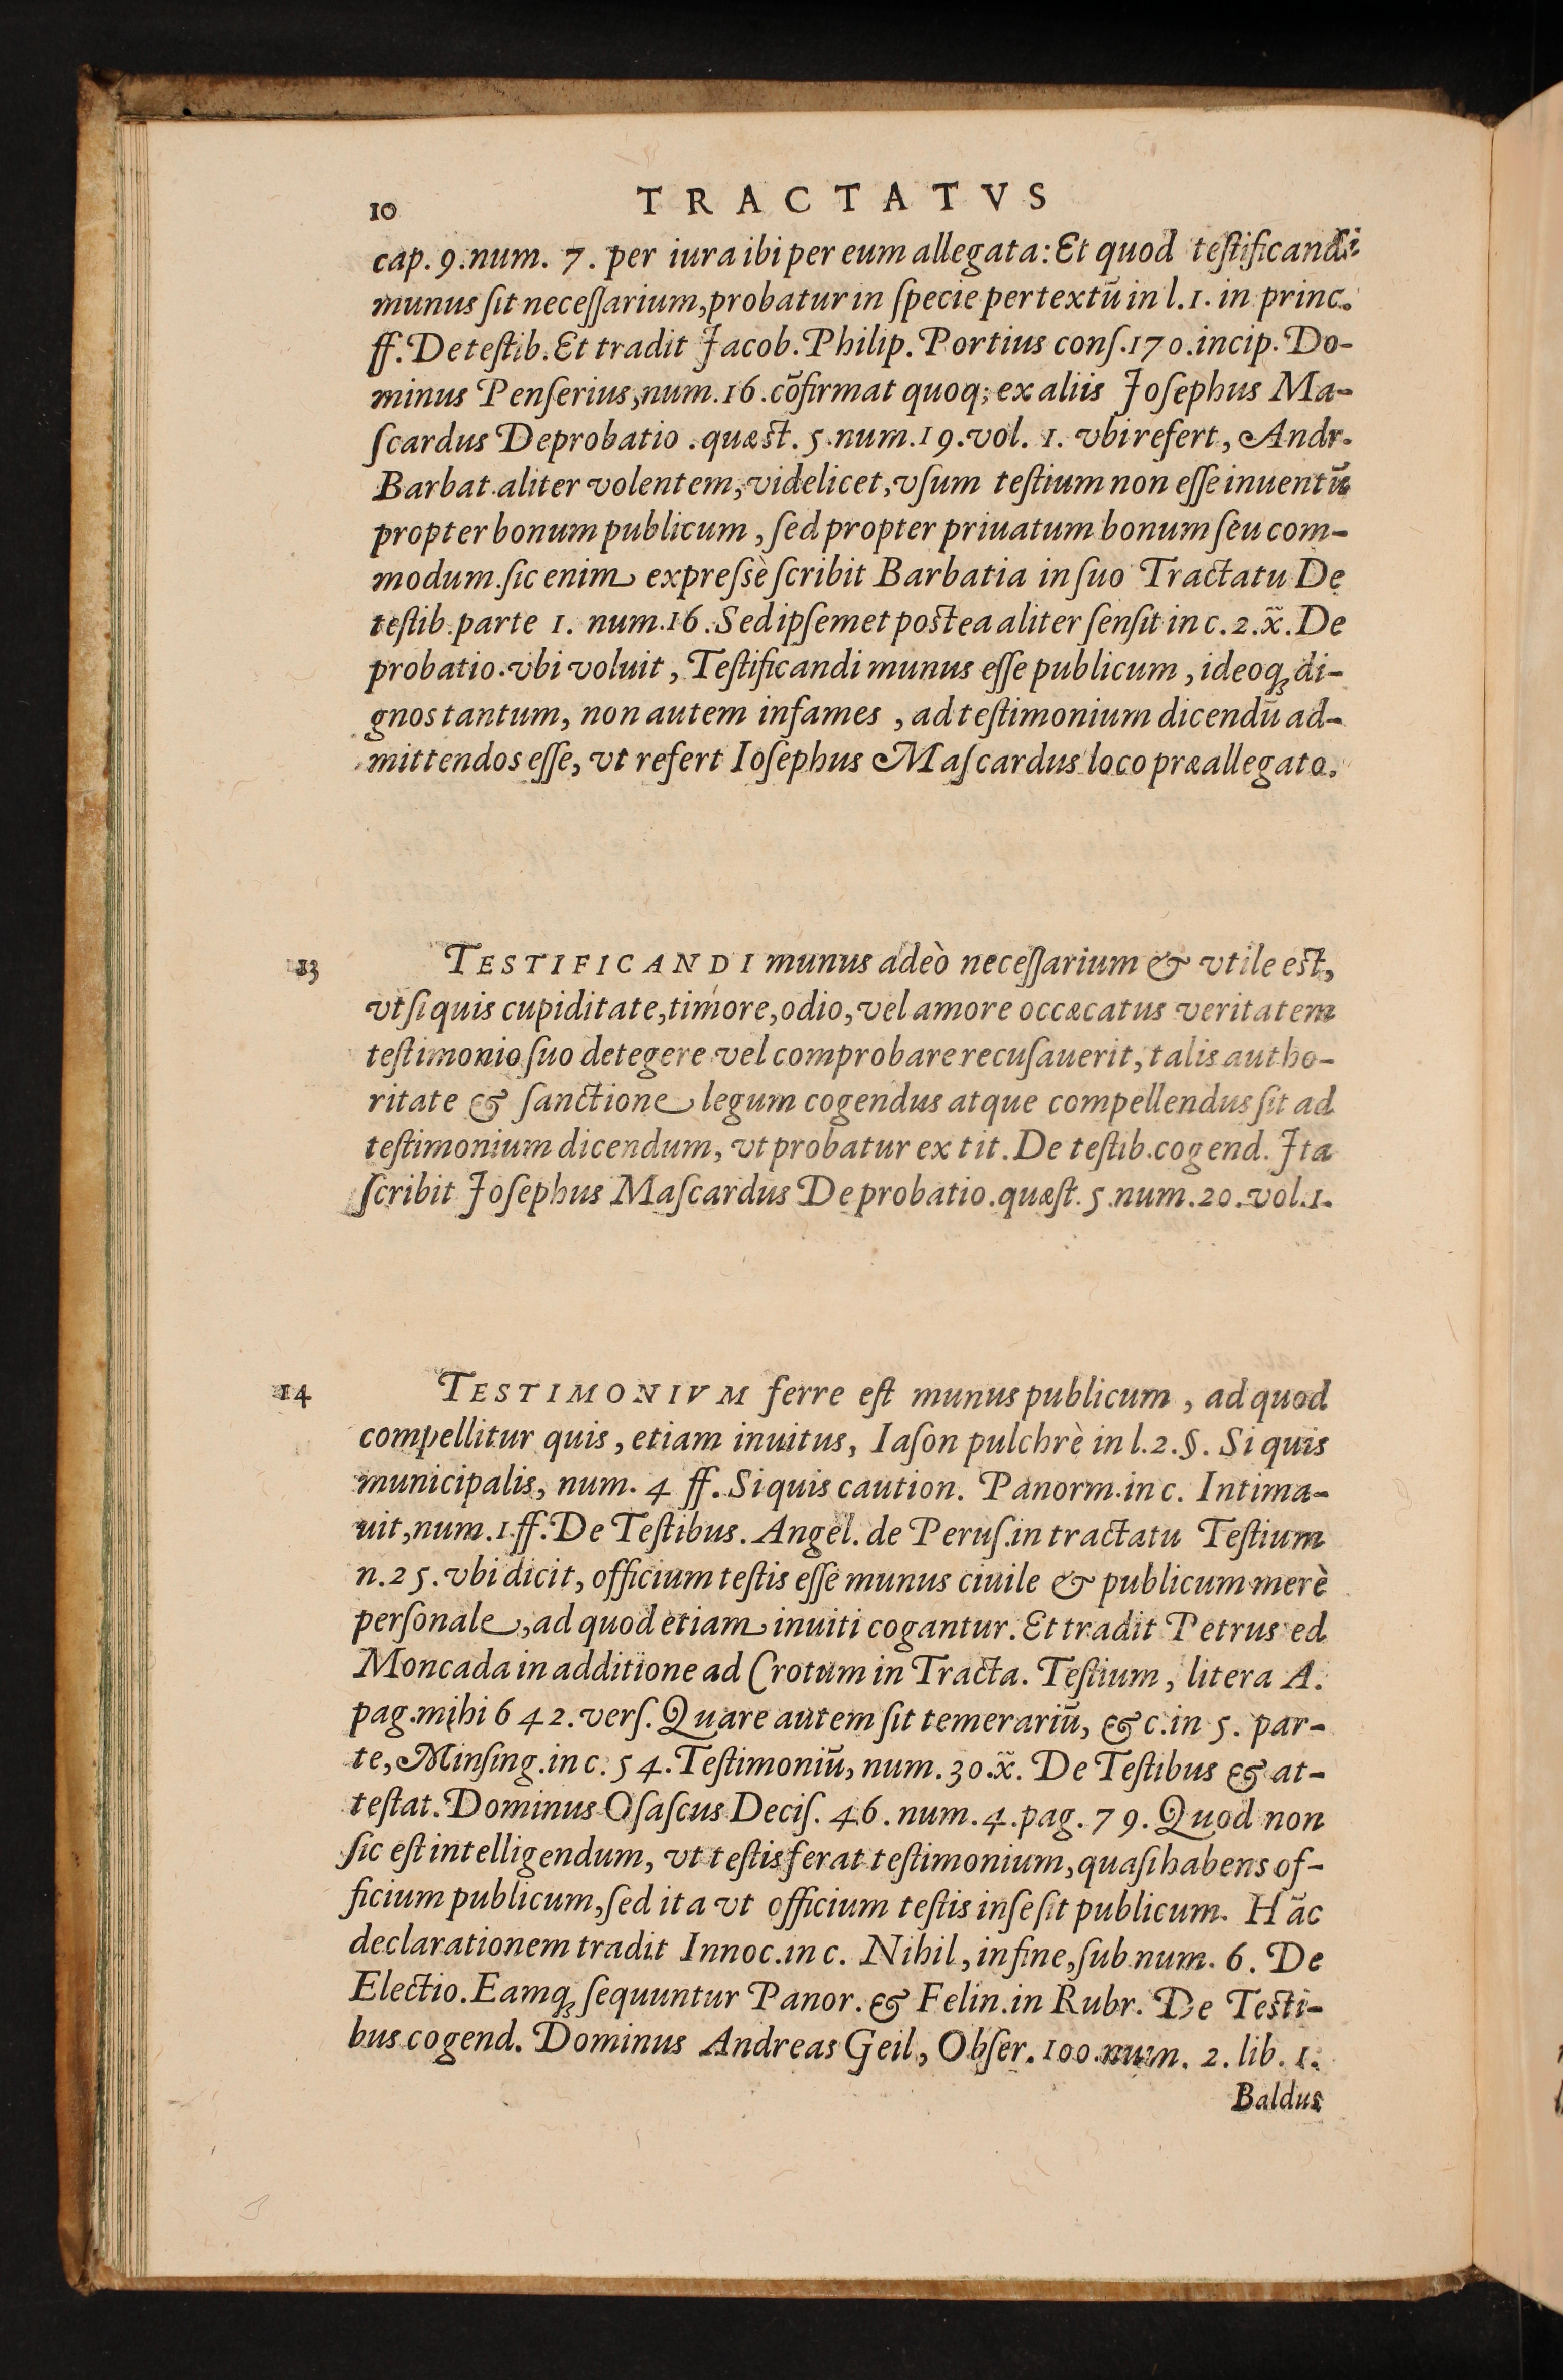 10 TRACTATVS
cap. 9. num. 7. per iura ibi per eum allegata: Et quod teſtificandi
munus ſit neceſſarium, probatur in ſpecie per textū in l. 1. in princ.
ff. De teſtib. Et tradit Jacob. Philip. Portius conſ. 170. incip. Do-
minus Penſerius, num. 16. cōfirmat quoq; ex aliis Joſephus Ma-
ſcardus De probatio. quæſt. 5. num. 19. vol. 1. vbi refert, Andr.
Barbat. aliter volentem, videlicet, vſum teſtium non eſſe inuentū
propter bonum publicum, ſed propter priuatum bonum ſeu com-
modum. ſic enim expreſsè ſcribit Barbatia in ſuo Tractatu De
teſtib. parte 1. num. 16. Sed ipſemet poſtea aliter ſenſit in c. 2. x̃. De
probatio. vbi voluit, Teſtificandi munus eſſe publicum, ideoq́ue di-
gnos tantum, non autem infames, ad teſtimonium dicendū ad-
mittendos eſſe, vt refert Ioſephus Maſcardus loco præallegato.
13 TESTIFICANDI munus adeò neceſſarium & vtile eſt,
vt ſi quis cupiditate, timore, odio, vel amore occæcatus veritatem
teſtimonio ſuo detegere vel comprobare recuſauerit, talis autho-
ritate & ſanctione legum cogendus atque compellendus ſit ad
teſtimonium dicendum, vt probatur ex tit. De teſtib. cogend. Jta
ſcribit Joſephus Maſcardus De probatio. quæſt. 5. num. 20. vol. 1.
14 TESTIMONIVM ferre eſt munus publicum, ad quod
compellitur quis, etiam inuitus, Iaſon pulchrè in l. 2. §. Si quis
municipalis, num. 4 ff. Si quis caution. Panorm. in c. Intima-
uit, num. 1. ff. De Teſtibus. Angel. de Peruſ. in tractatu Teſtium
n. 25. vbi dicit, officium teſtis eſſe munus ciuile & publicum merè
perſonale, ad quod etiam inuiti cogantur. Et tradit Petrus ed
Moncada in additione ad Crotum in Tracta. Teſtium, litera A.
pag. mihi 642. verſ. Quare autem ſit temerariū, &c. in 5. par-
te, Minſing. in c. 54. Teſtimoniū, num. 30. x̃. De Teſtibus & at-
teſtat. Dominus Oſaſcus Deciſ. 46. num. 4. pag. 79. Quod non
ſic eſt intelligendum, vt teſtis ferat teſtimonium, quaſi habens of-
ficium publicum, ſed ita vt officium teſtis in ſe ſit publicum. Hāc
declarationem tradit Innoc. in c. Nihil, in fine, ſub num. 6. De
Electio. Eamq́ue ſequuntur Panor. & Felin. in Rubr. De Teſti-
bus cogend. Dominus Andreas Geil, Obſer. 100. num. 2. lib. 1.
Baldus